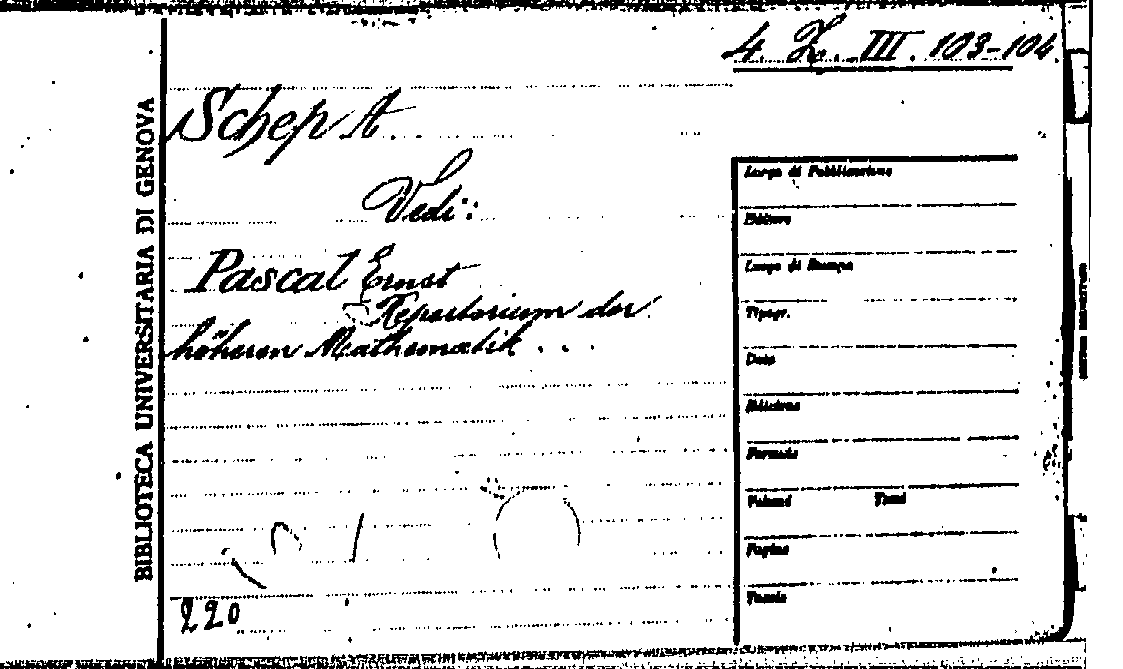 4. Z. III. 103-104
BIBLIOTECA UNIVERSITARIA DI GENOVA
Schep A.
Vedi:
Pascal Ernst
Repertorium der
höheren Mathematik . . .
220
Luogo di Pubblicazione
Editore
Luogo di Stampa
Tipogr.
Data
Edizione
Formato
Volumi Tomi
Pagine
Tavole